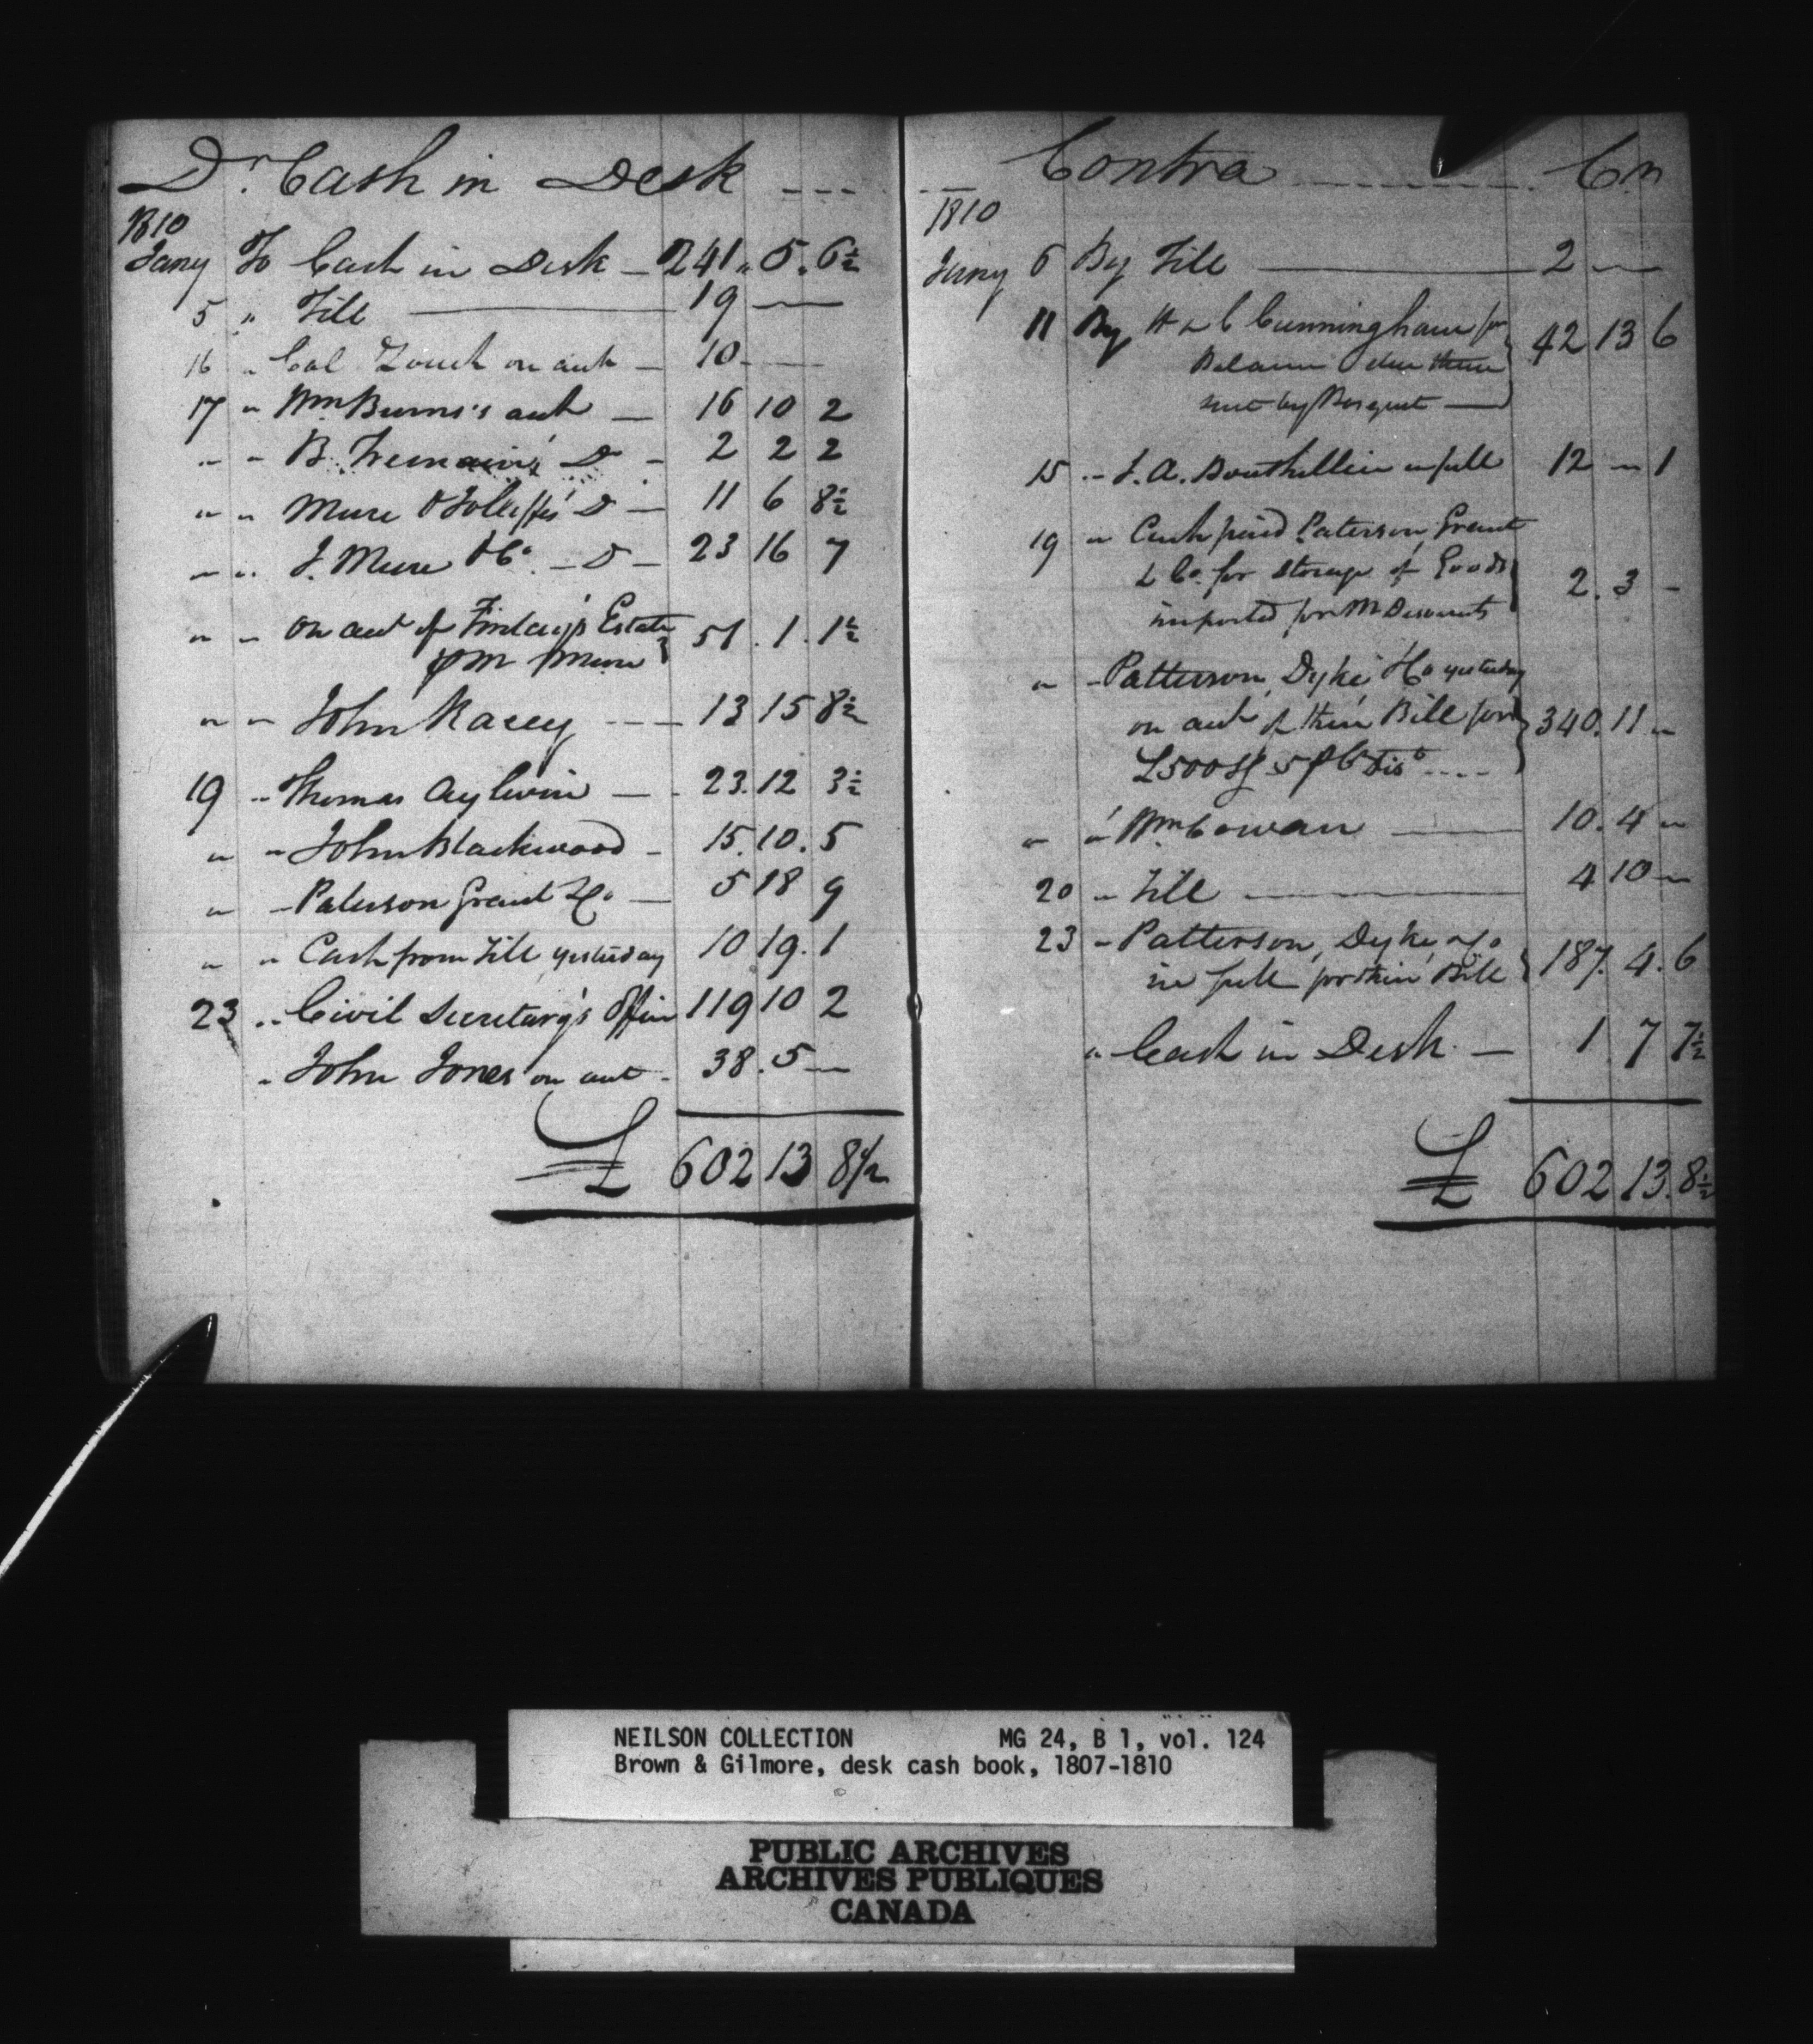 Dr. Cash in Desk
1810
Jany To Cash in Desk 241 " 5 . 6½
5 " Till 19 —
16 " Col Zouch on acct 10 —
17 " Wm Burns's acct 16 10 2
" " B. Tremain's Do 2 2 2
" " Mure & Joliffe's Do 11 6 8½
" " J. Mure & Co. Do 23 16 7
" " On acct of Finlay's Estate
pr Mr Mure 51 . 1 . 1½
" " John Racey 13 15 8½
19 " Thomas Aylwin 23 . 12 3½
" " John Blackwood 15 . 10 . 5
" " Paterson Grant & Co 5 18 9
" " Cash from Till yesterday 10 19 . 1
23 " Civil Secretary's Office 119 10 2
" John Jones on acct 38 . 5 —
£ 602 13 8½
Contra Cr
1810
Jany 6 By Till 2 —
11 By H & C Cunningham for
Balance due them
sent by Bosquet 42 13 6
15 " J. A. Bouthillier in full 12 " 1
19 " Cash paid Paterson, Grant
& Co. for storage of Goods
imported for Mr 2 . 3 -
" " Patterson, Dyke & Co yesterday
on acct of their Bill for
£500 Stg 5 p Ct Disct 340 . 11 "
" " Wm Cowan 10 . 4 "
20 " Till 4 10 "
23 " Patterson, Dyke, & Co
in full for their Bill 187 . 4 . 6
" Cash in Desk 1 7 7½
£ 602 13 . 8½
NEILSON COLLECTION MG 24, B 1, vol. 124
Brown & Gilmore, desk cash book, 1807-1810
PUBLIC ARCHIVES
ARCHIVES PUBLIQUES
CANADA